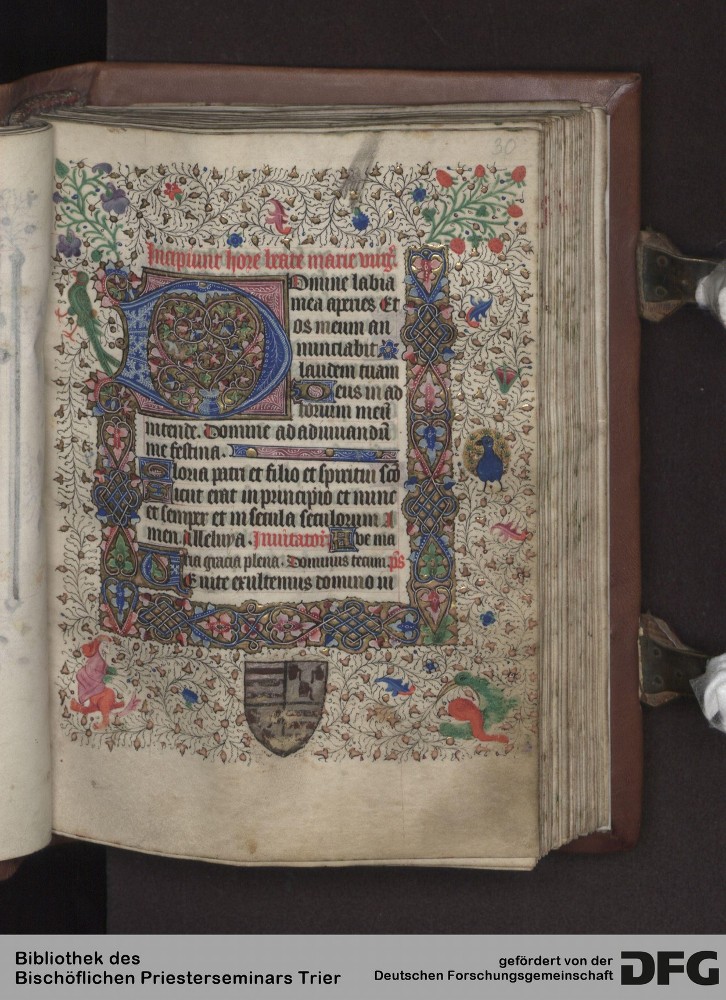 30
Incipiunt hore beate marie virg͛.
Domine labia
mea aperies Et
os meum an
nunciabit
laudem tuam
Deus in ad
iutorium meū
intende. Domine ad adiuuandū
me festina.
Gloria patri et filio et spiritui scō
Sicut erat in principio et nunc
et semper et in secula seculorum A
men. Alleluya. Inuitator͛ Aue ma
ria gracia plena. Dominus tecum. p̄s
Uenite exultemus domino iu
Bibliothek des
Bischöflichen Priesterseminars Trier
gefördert von der
Deutschen Forschungsgemeinschaft
DFG